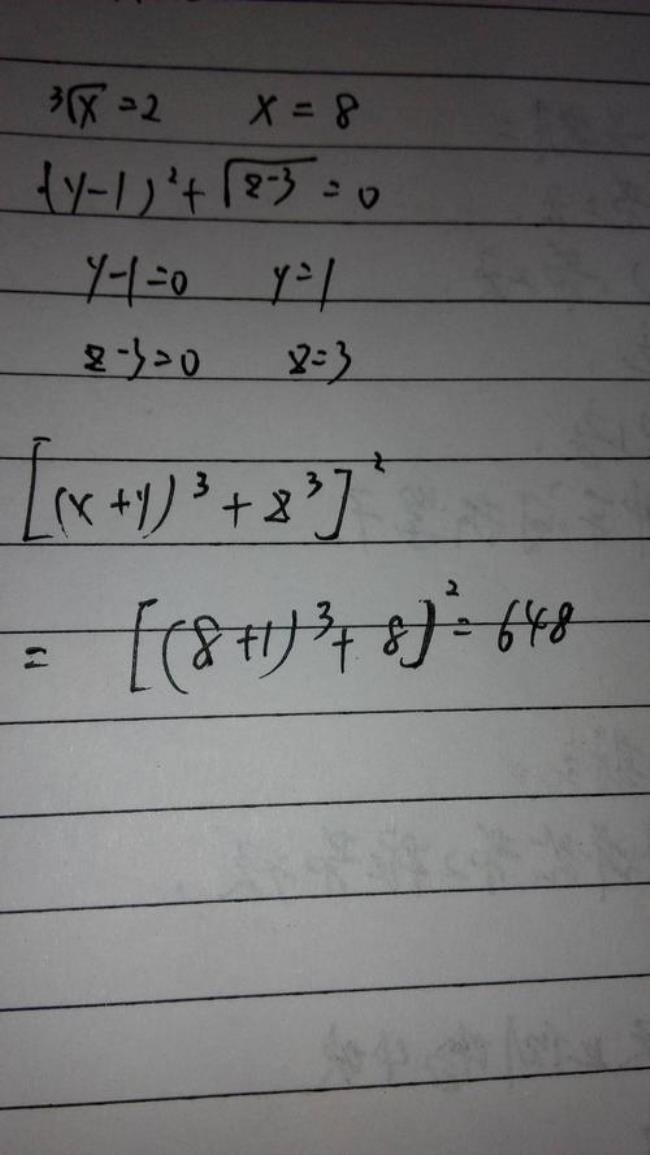 ³√x = 2 x = 8
(y-1)² + √(z-3) = 0
y-1=0 y=1
z-3=0 z=3
[(x+y)³ + z³]²
= [(8+1)³ + 8]² = 648